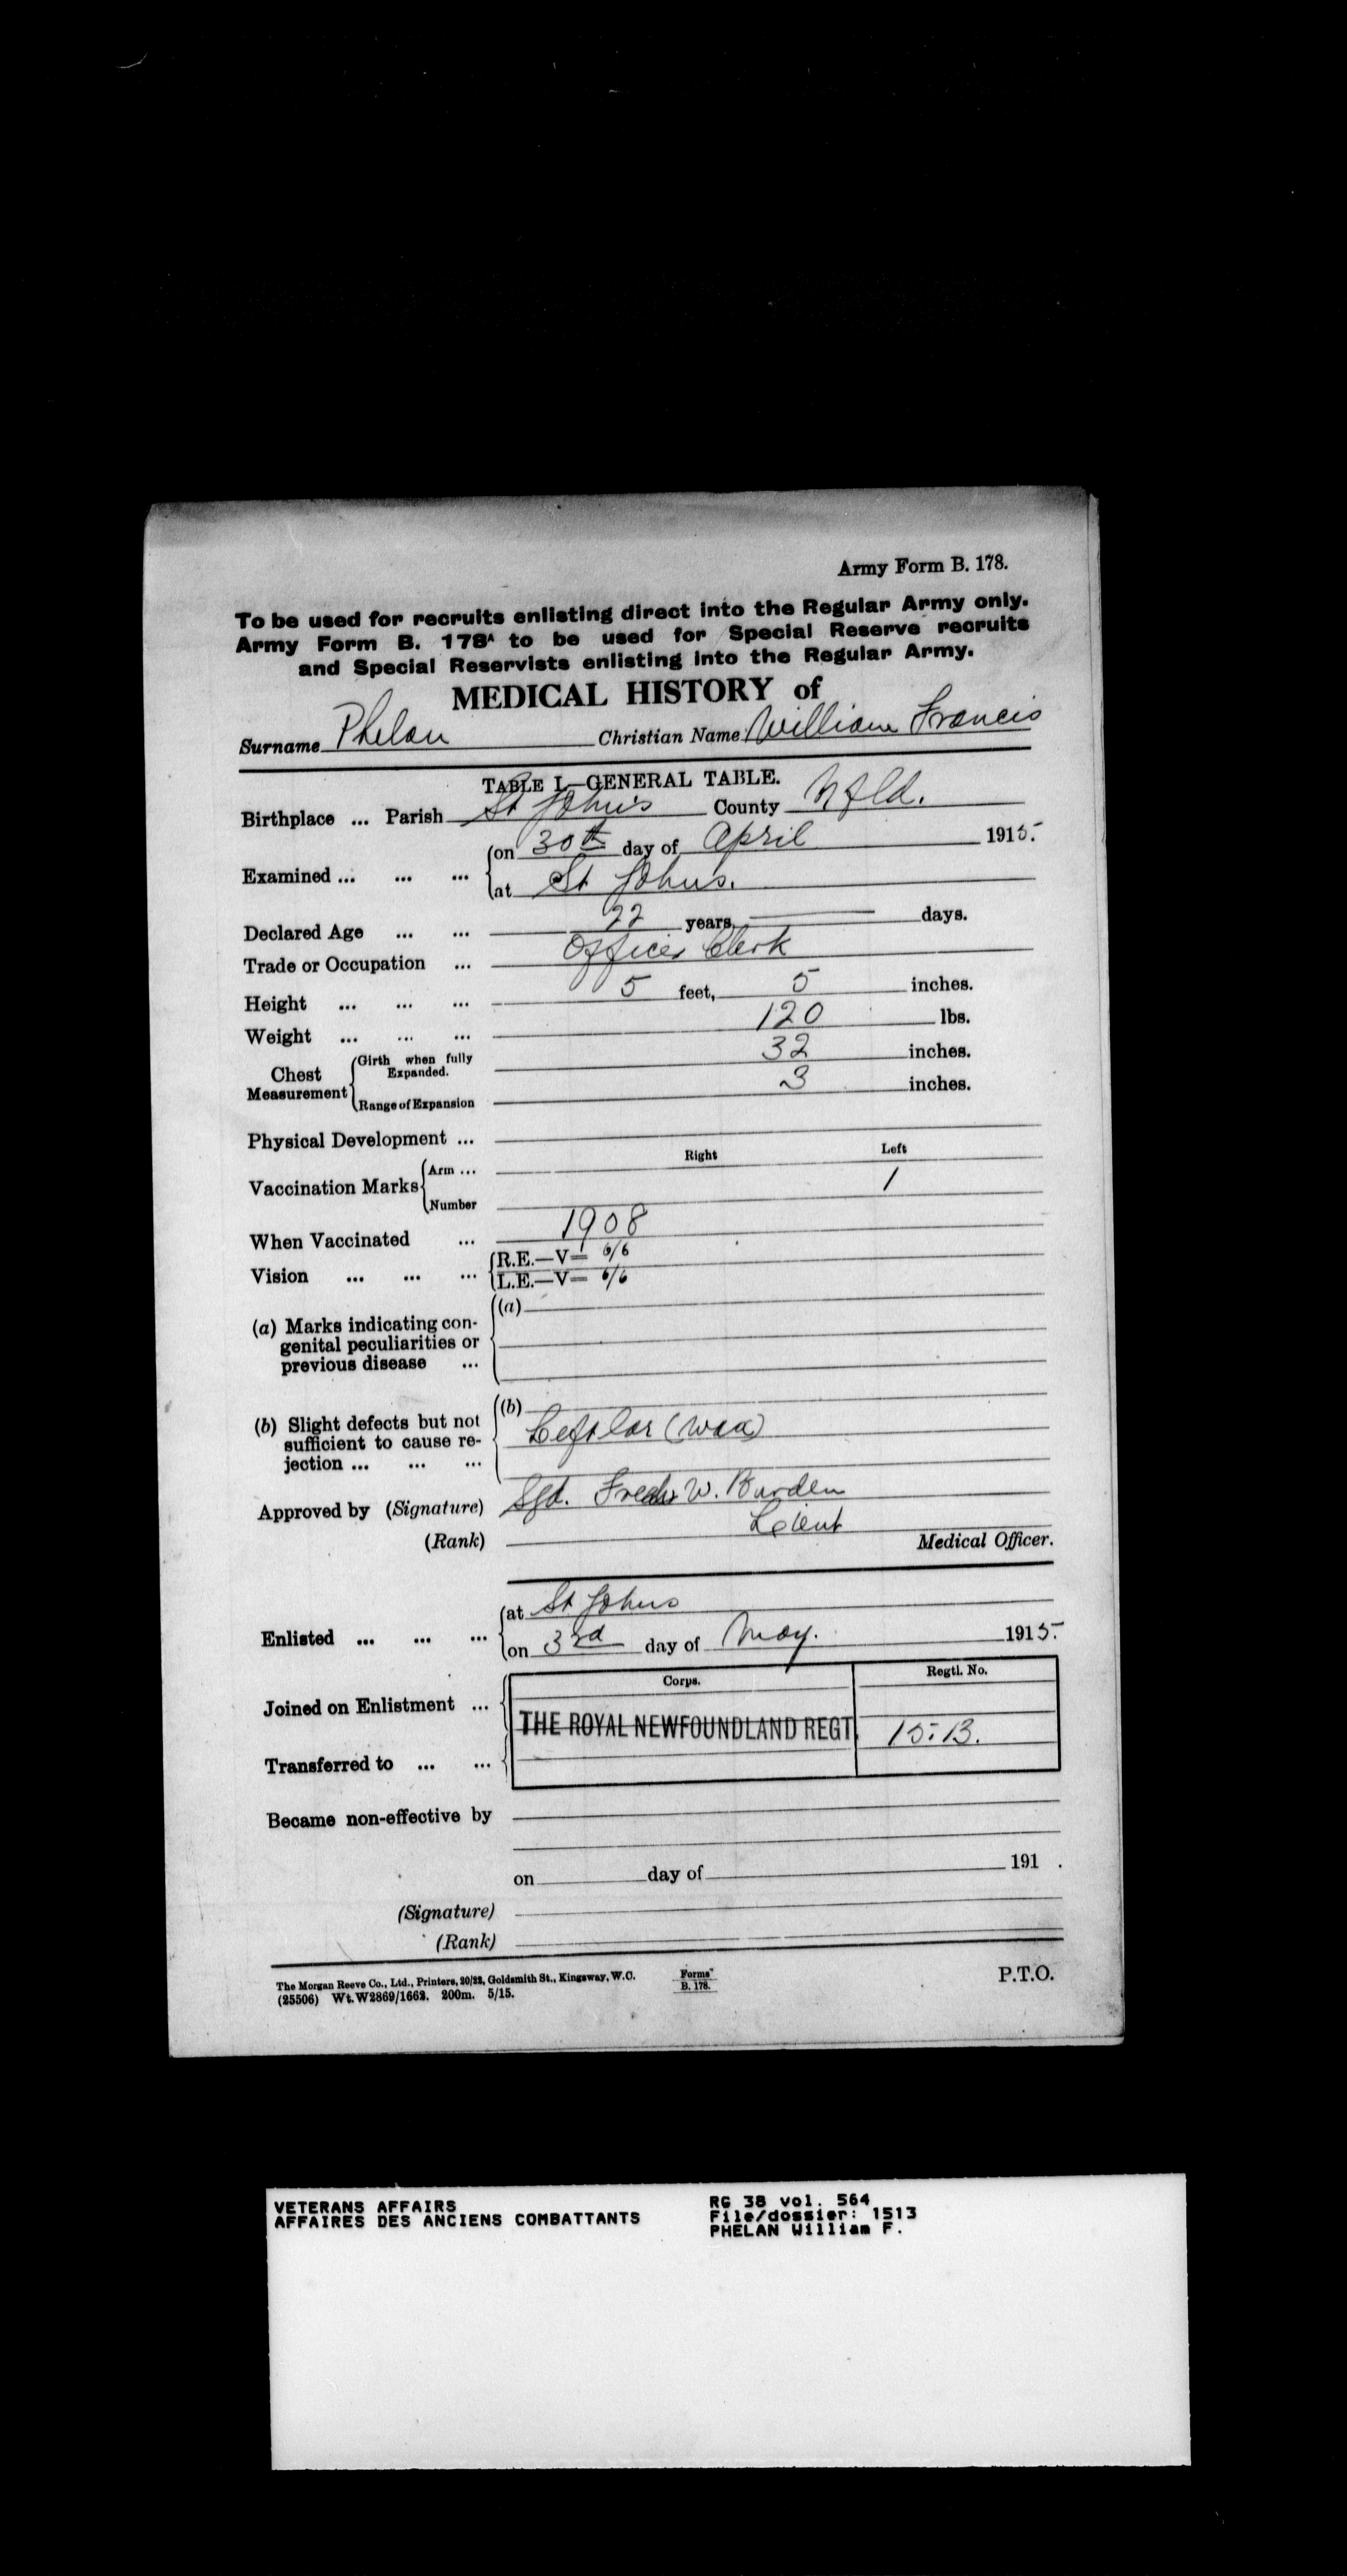 Army Form B. 178.
To be used for recruits enlisting direct into the Regular Army only.
Army Form B. 178ᴬ to be used for Special Reserve recruits
and Special Reservists enlisting into the Regular Army.
MEDICAL HISTORY of
Surname Phelan Christian Name William Francis
TABLE I.—GENERAL TABLE.
Birthplace ... Parish St John's County Nfld.
Examined ... ... ... on 30th day of April 1915.
at St Johns.
Declared Age ... ... 22 years, days.
Trade or Occupation ... Office Clerk
Height ... ... ... 5 feet, 5 inches.
Weight ... ... ... 120 lbs.
Chest Measurement Girth when fully Expanded. 32 inches.
Range of Expansion 3 inches.
Physical Development ...
Right Left
Vaccination Marks Arm ...
Number 1
When Vaccinated ... 1908
Vision ... ... ... R.E.—V= 6/6
L.E.—V= 6/6
(a) Marks indicating con-
genital peculiarities or
previous disease ... (a)
(b) Slight defects but not
sufficient to cause re-
jection ... ... ... (b) (wax)
Approved by (Signature) Sgd. Fredk W. Burden
(Rank) Lieut Medical Officer.
Enlisted ... ... ... at St Johns
on 3rd day of May. 1915.
Corps. Regtl. No.
Joined on Enlistment ... THE ROYAL NEWFOUNDLAND REGT. 15.13.
Transferred to ... ...
Became non-effective by
on day of 191 .
(Signature)
(Rank)
The Morgan Reeve Co., Ltd., Printers, 20/22, Goldsmith St., Kingsway, W.C.
(25506) Wt. W2869/1662. 200m. 5/15.
Forms
B. 178.
P.T.O.
VETERANS AFFAIRS
AFFAIRES DES ANCIENS COMBATTANTS
RG 38 vol. 564
File/dossier: 1513
PHELAN William F.